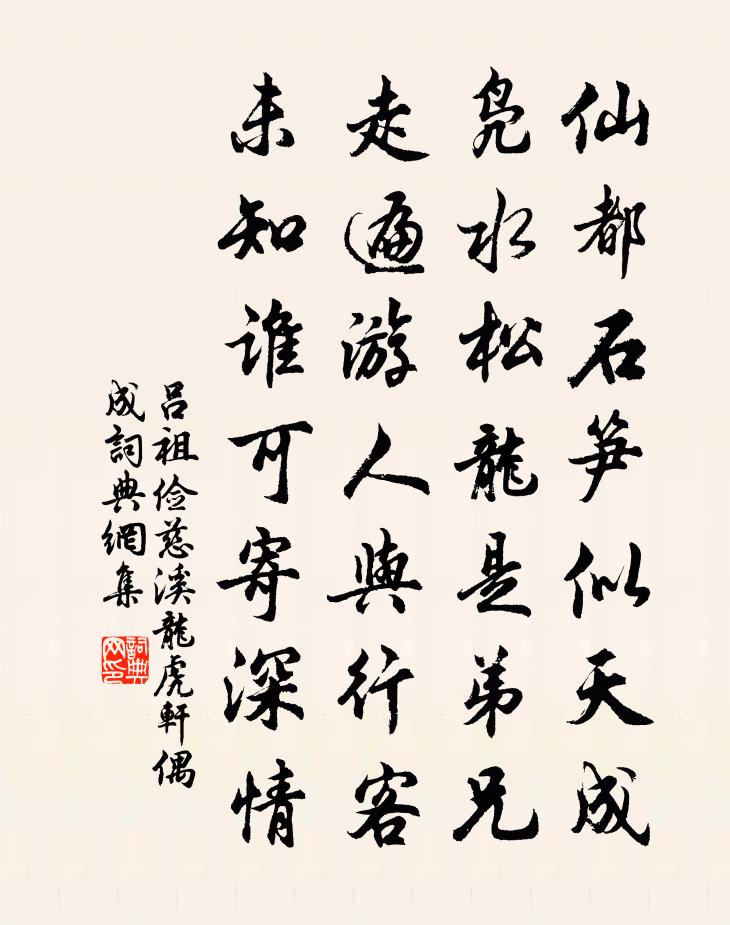 仙都石笋似天成
凫水松龍是弟兄
走遍游人與行客
未知誰可寄深情
吕祖儉慈溪龍虎軒偶
成詞典網集
詞典
网印